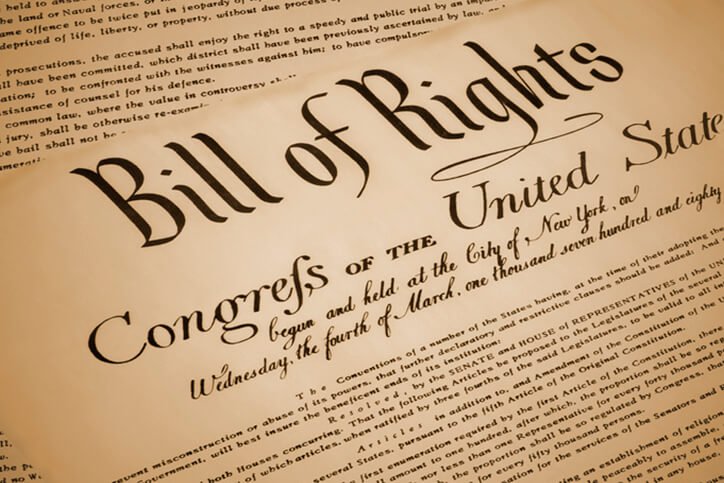 held to answ
the land or Naval forces, or in
ame offence to be twice put in jeopardy of l
deprived of life, liberty, or property, without due process of
prosecutions, the accused shall enjoy the right to a speedy and public trial by an imp
ll have been committed, which district shall have been previously ascertained by law, and
ation; to be confronted with the witnesses against him; to have compulsory
ssistance of counsel for his defence.
common law, where the value in controversy shall
jury, shall be otherwise re-exami
ve bail shall not be
umerati
Bill of Rights
Congreſs OF THE United State
begun and held at the City of New York, on
Wednesday, the fourth of March, one thousand seven hundred and eighty
The Conventions of a number of the States having, at the time of their adopting the
or abuse of its powers, that further declaratory and restrictive clauses should be added: And
event misconstruction
Government, will best insure the beneficent ends of its institution:
Resolved, by the SENATE and HOUSE of REPRESENTATIVES of the UN
both Houses concurring. That the following Articles be proposed to the Legislatures of the several
of which articles, when ratified by three fourths of the said Legislatures, to be valid to all in
Articles in addition to, and Amendment of the Constitution of the U
several States, pursuant to the fifth Article of the Original Constitution.
first enumeration required by the first Article of the Constitution, there
amount to one hundred, after which, the proportion shall be so reg
nor less than one Representative for every forty thousand
the proportion shall be so regulated by Congress, that
for every fifty thousand persons.
for the services of the Senators and R
ng an establishment of religion
peaceably to assemble